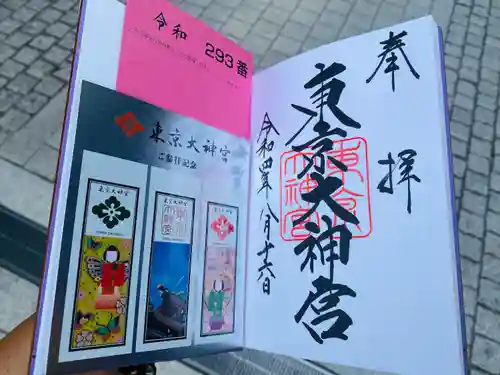 令和
293番
東京大神宮
ご参拝記念
東京大神宮
東京大神宮
東京大神宮
奉拝
東京大神宮
令和四年八月十六日